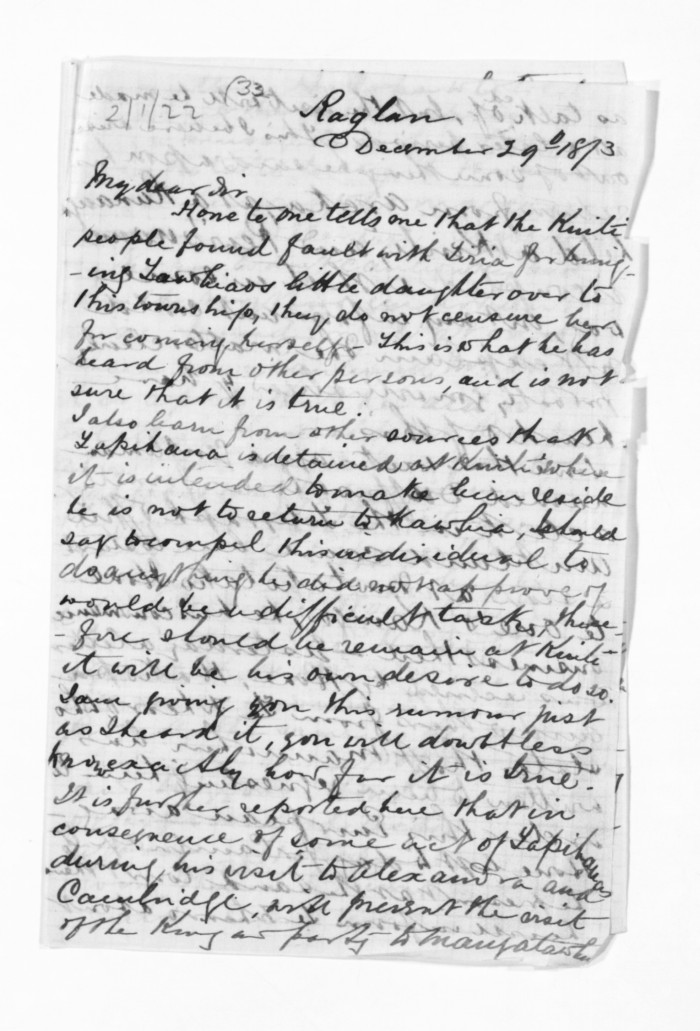 (33
2/1/22
Raglan
December 29th 1873
My dear Sir
Hone te One tells me that the Kuiti
people found fault with Tiria for bring-
-ing Tawhiaos little daughter over to
this township, they do not censure her
for coming herself - This is what he has
heard from other persons, and is not
sure that it is true.
I also learn from other sources that
Tapihana is detained at Kuiti where
it is intended to make him reside
he is not to return to Kawhia, I should
say to compel this individual to
do anything he did not approve of
would be a difficult task, there-
-fore should he remain at Kuiti
it will be his own desire to do so.
I am giving you this rumour just
as I heard it, you will doubtless
know exactly how far it is true.
It is further reported here that in
consequence of some act of Tapihanas
during his visit to Alexandra and
Cambridge, will prevent the visit
of the King or party to Mangatawhiri